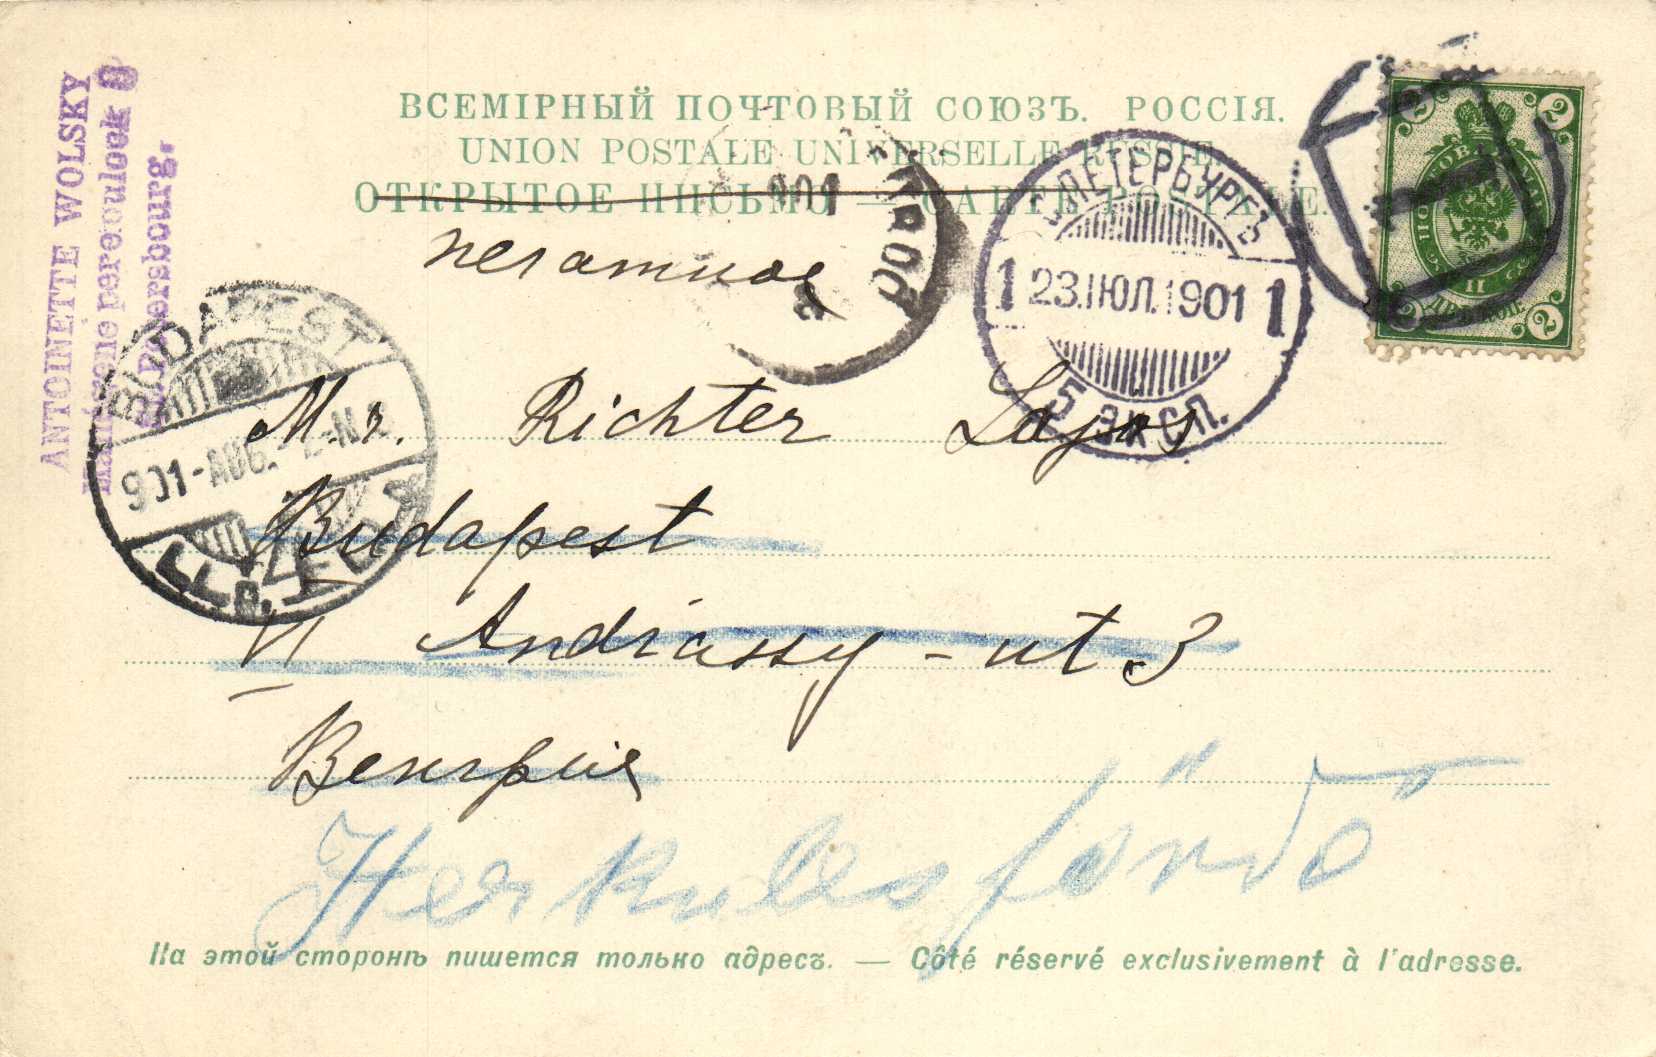 ВСЕМІРНЫЙ ПОЧТОВЫЙ СОЮЗЪ. РОССІЯ.
UNION POSTALE UNIVERSELLE RUSSIE.
ОТКРЫТОЕ ПИСЬМО — CARTE POSTALE.
печатное
ANTOINETTE WOLSKY
pereoulook 8
St. Petersbourg.
С.ПЕТЕРБУРГЪ
1 23.ІЮЛ.1901 1
5 ЭКСП.
901
BUDAPEST
901-AUG.-2-N.
M. r. Richter Lajos
Budapest
VI Andrássy - ut 3
Венгрия
Herkulesfürdő
На этой сторонѣ пишется только адресъ. — Côté réservé exclusivement à l'adresse.